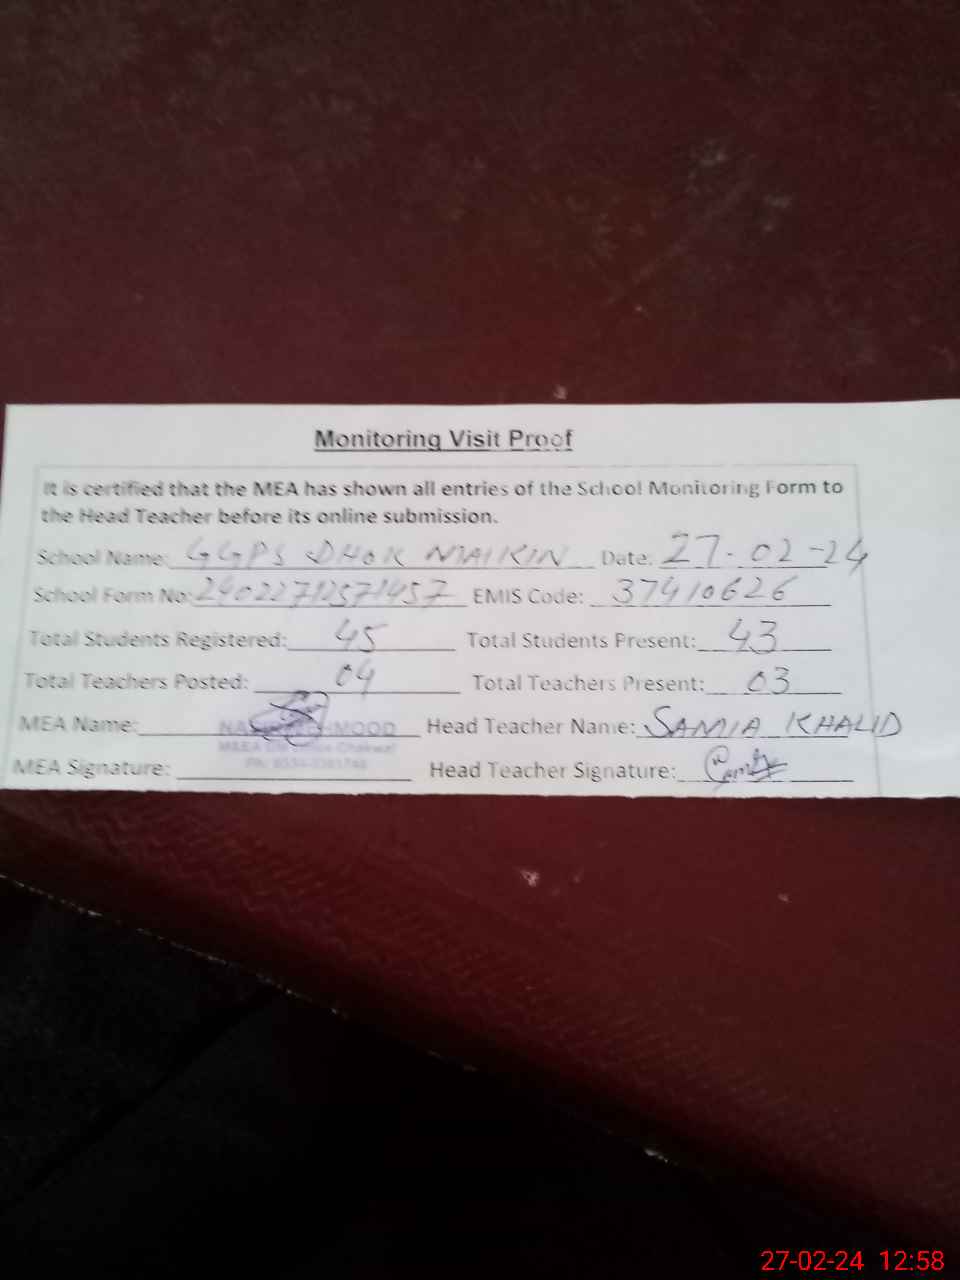 Monitoring Visit Proof
It is certified that the MEA has shown all entries of the School Monitoring Form to
the Head Teacher before its online submission.
School Name: GGPS DHOK MAIKIN Date: 27-02-24
School Form No: 24022712571457 EMIS Code: 37410626
Total Students Registered: 45 Total Students Present: 43
Total Teachers Posted: 04 Total Teachers Present: 03
MEA Name: Head Teacher Name: SAMIA KHALID
MEA Signature: Head Teacher Signature:
27-02-24 12:58